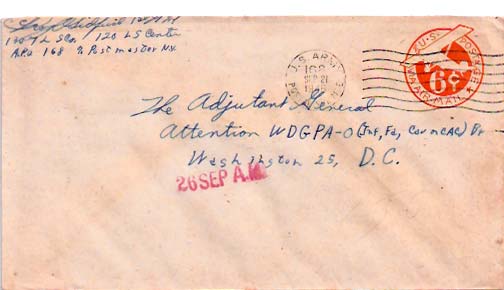 120 LS Center
APO 168 % Postmaster N.Y.
U.S. ARMY
168
SEP 21
U.S. POSTAGE
6¢
VIA AIR MAIL
The Adjutant General
Attention WDGPA-O (Inf, Fa, Cav mCAC) Br
Washington 25, D.C.
26 SEP A.M.